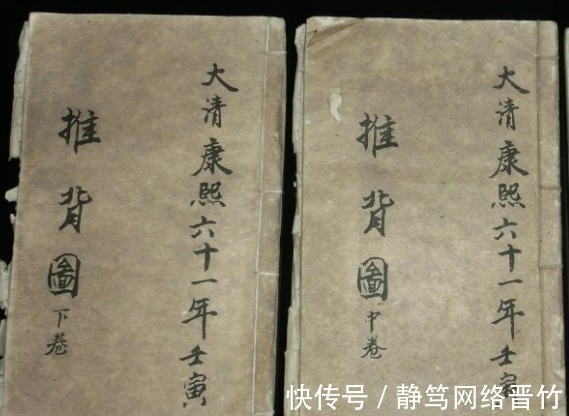 大清康熙六十一年壬寅
推背圖下卷
大清康熙六十一年壬寅
推背圖中卷
快传号/静笃网络晋竹